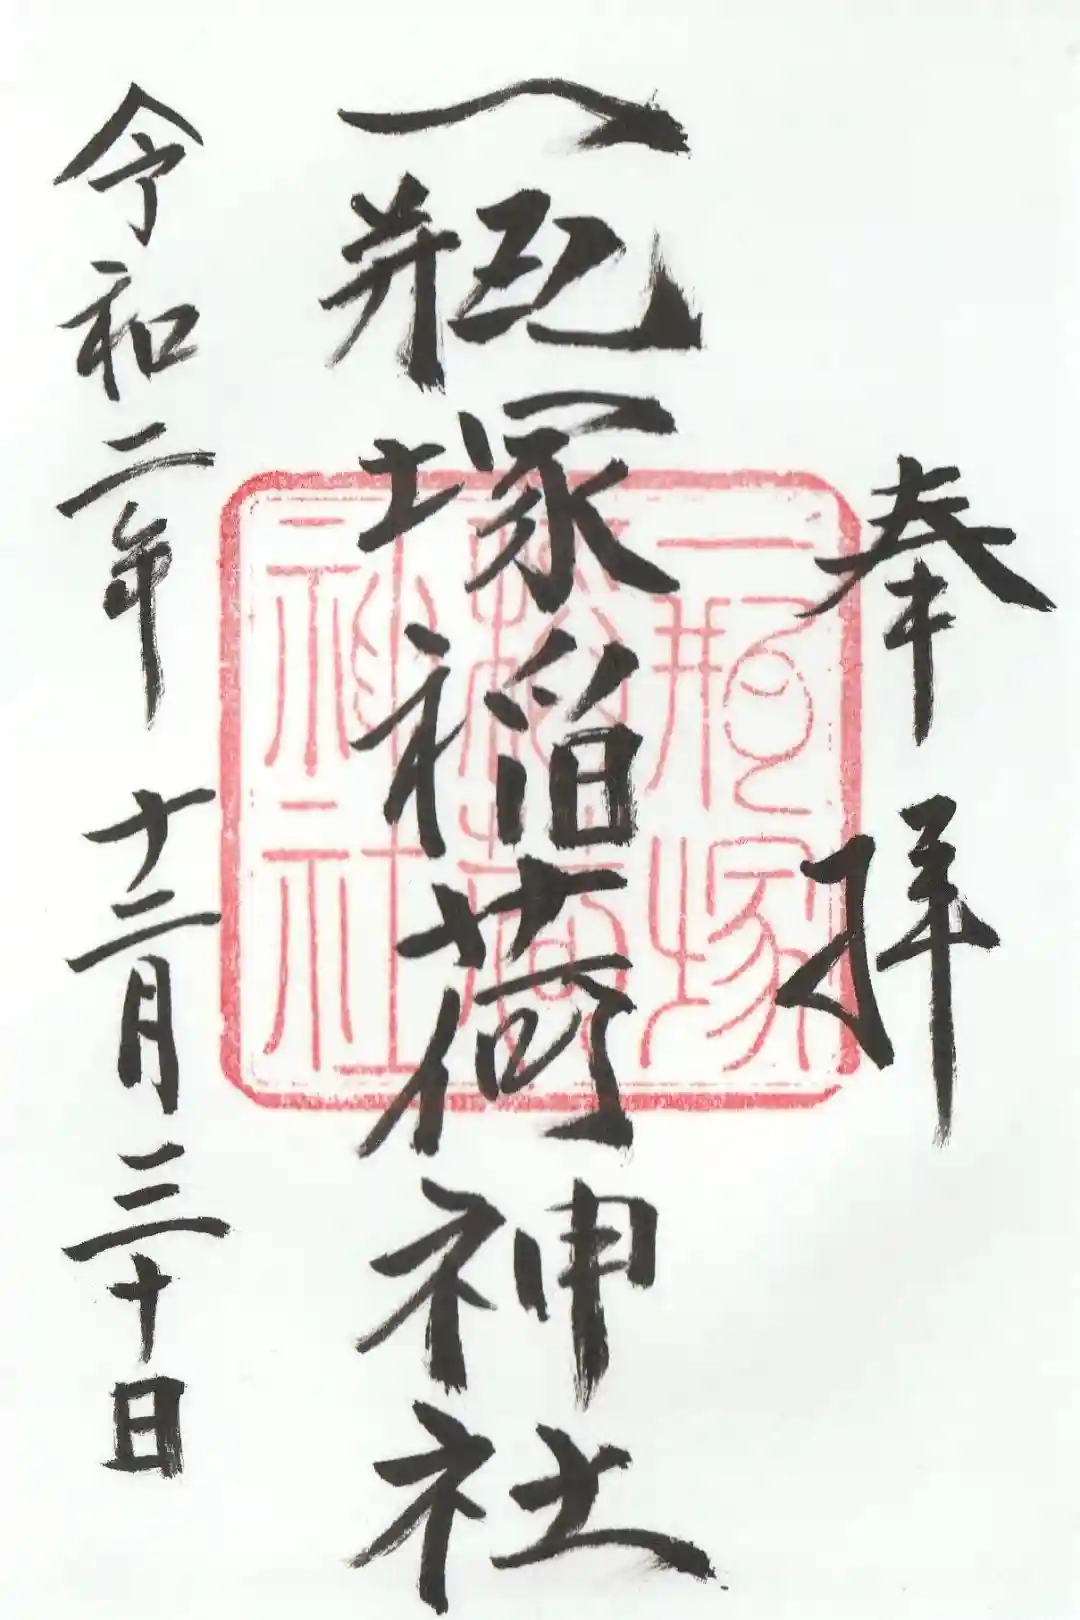 奉拝
一瓶塚稲荷神社
一瓶塚
稲荷
神社
令和二年十二月三十日